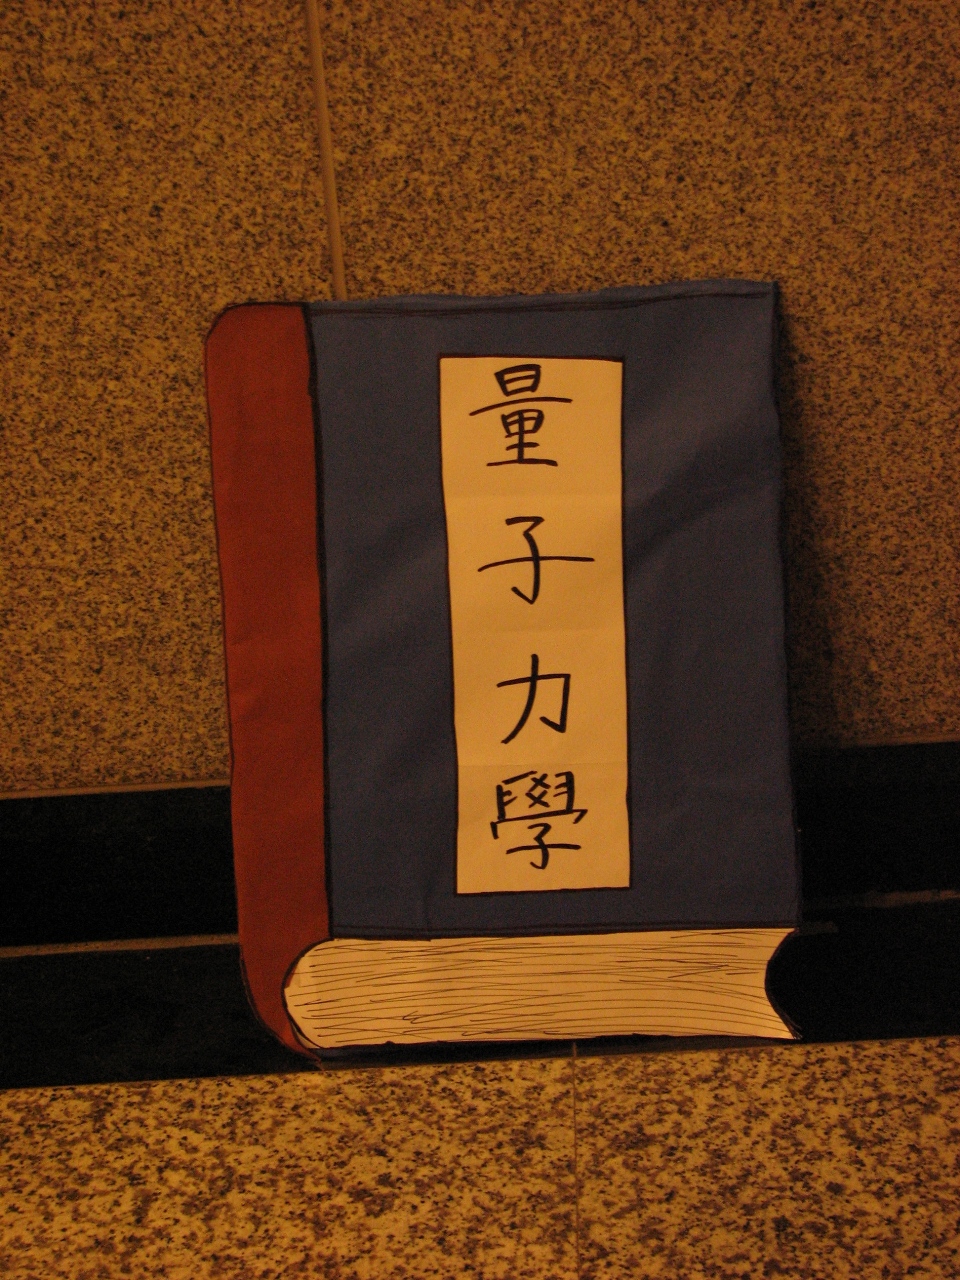 量子力學